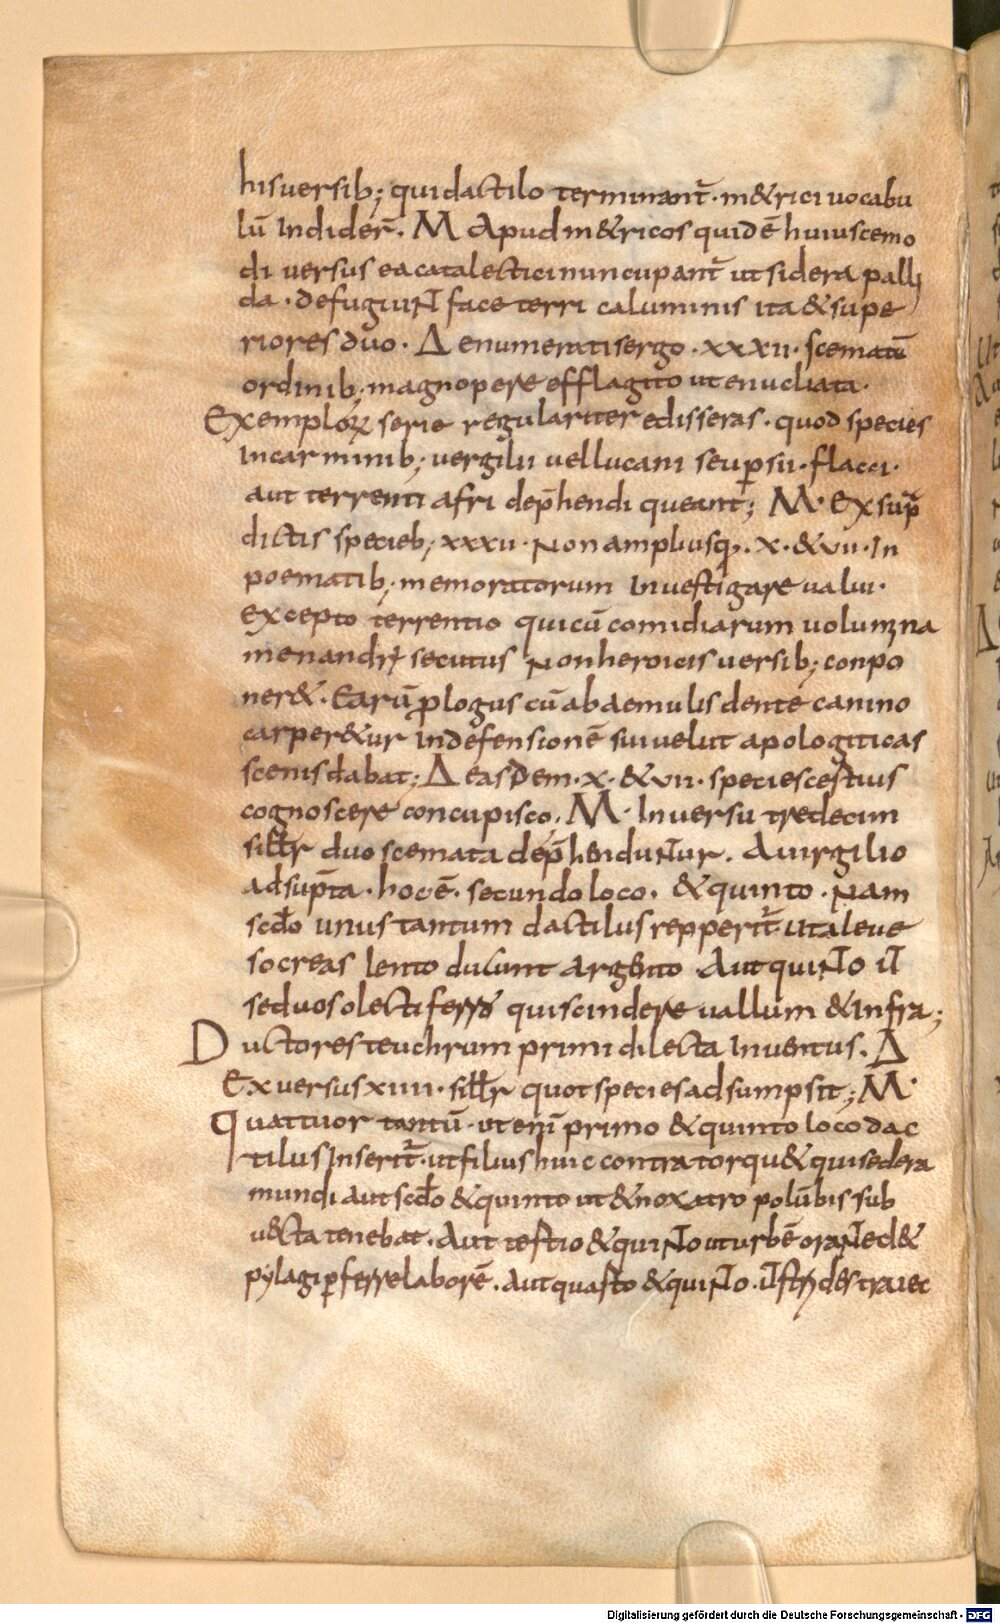 hisversib; qui dactilo terminant̄· m&rici vocabu
lū indider̄. M Apud m&ricos quidē huiuscemo
di versus eacatalectici nuncupant̄ ut sidera palli
da· defugiunt face terri caluminis ita & supe
riores duo· Δ enumeratis ergo· xxxii· scematū
ordinib; magnopere efflagito ut enucliata·
Exemplorꝝ serie regulariter edisseras· quod species
In carminib; vergilii vel lucani seu ꝑsii· flacci·
aut terrenti afri dep̄hendi queant; M· Ex sup̄
dictis specieb; xxxii· Non ampliusq;· x· & vii· In
poematib; memoratorum Investigare valui·
excepto terrentio qui cū comidiarum volumina
menandrę secutus Non heroicis versib; conpo
ner&· Earū prologus cū ab aemulis dente canino
carper&ur in defensionē sui velut apologiticas
scenis dabat; Δ easdem· x· & vii· species cestius
cognoscere concupisco, M· In versu tredecim
sillr̄ duo scemata dep̄henduntur. A virgilio
adsup̄ta· hoc ē· secundo loco· & quinto· Nam
scd̄o unus tantum dactilus repperit̄· ut aleve
socreas lento ducunt argento Aut quinto ut
seduo solecti ferro qui scindere vallum & infra;
Ductores teuchrum primi dilecta Inventus. Δ
Ex versu xiiii· sillr̄ quot species adsumpsit; M·
Quattuor tantū· ut enī primo & quinto loco dac
tilus Inserit̄· ut filius huic contra torqu& qui sidera
mundi aut scd̄o & quinto ut & nox atro polūbis sub
v&cta tenebat. Aut tertio & quinto ut urbē orant ed&
pylagi ꝑferre laborē. Aut quarto & quinto· ut str̄ des traiec